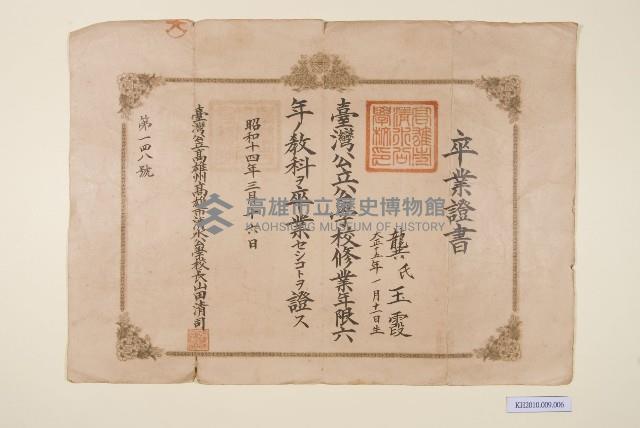 卒業證書
龔氏玉霞
大正十五年一月十二日生
臺灣公立公學校修業年限六
年ノ教科ヲ卒業セシコトヲ證ス
昭和十四年三月二十六日
臺灣公立高雄州高雄市清水公學校長山田清司
第一四八號
高雄市立歷史博物館
KAOHSIUNG MUSEUM OF HISTORY
KH2010.009.006